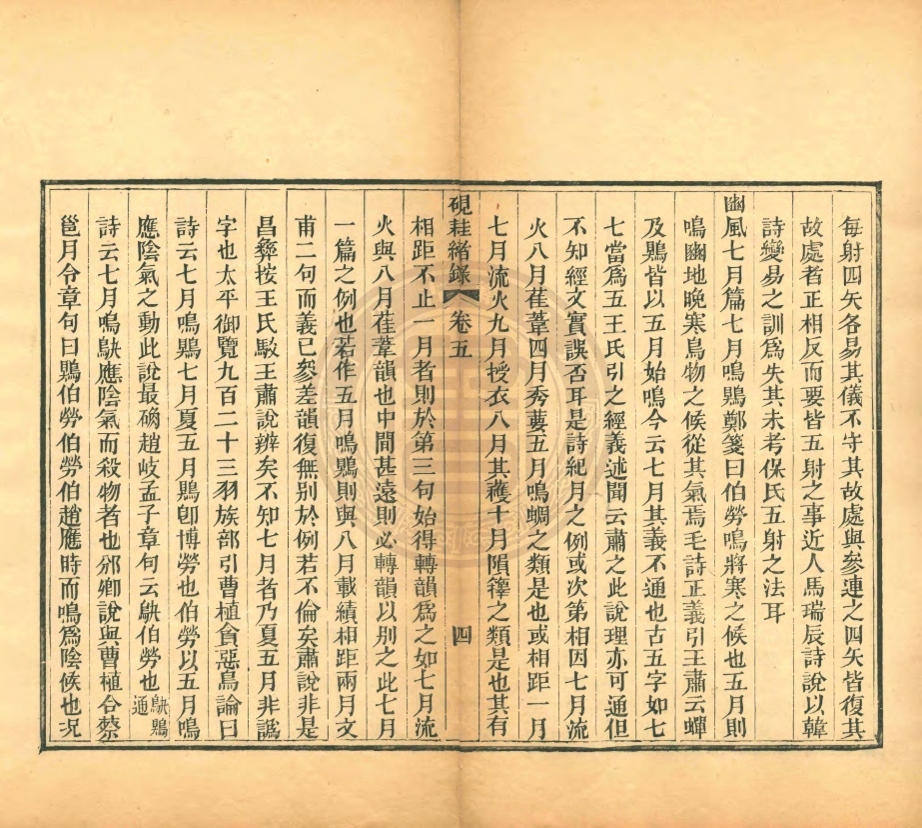 每射四矢各易其儀不守其故處與參連之四矢皆復其
故處者正相反而要皆五射之事近人馬瑞辰詩說以韓
詩變易之訓爲失其未考保氏五射之法耳
豳風七月篇七月鳴鵙鄭箋曰伯勞鳴將寒之候也五月則
鳴豳地晚寒鳥物之候從其氣焉毛詩正義引王肅云蟬
及鵙皆以五月始鳴今云七月其義不通也古五字如七
七當爲五王氏引之經義述聞云肅之此說理亦可通但
不知經文實誤否耳是詩紀月之例或次第相因七月流
火八月萑葦四月秀葽五月鳴蜩之類是也或相距一月
七月流火九月授衣八月其穫十月隕蘀之類是也其有
硯耕緒錄 卷五 四
相距不止一月者則於第三句始得轉韻爲之如七月流
火與八月萑葦韻也中間甚遠則必轉韻以別之此七月
一篇之例也若作五月鳴鵙則與八月載績相距兩月文
甫二句而義已參差韻復無別於例若不倫矣肅說非是
昌彝按王氏駁王肅說辨矣不知七月者乃夏五月非譌
字也太平御覽九百二十三羽族部引曹植貪惡鳥論曰
詩云七月鳴鵙七月夏五月鵙卽博勞也伯勞以五月鳴
應陰氣之動此說最确趙岐孟子章句云鴃伯勞也鴃鵙通
詩云七月鳴鴃應陰氣而殺物者也邠卿說與曹植合蔡
邕月令章句曰鵙伯勞伯趙應時而鳴爲陰候也况